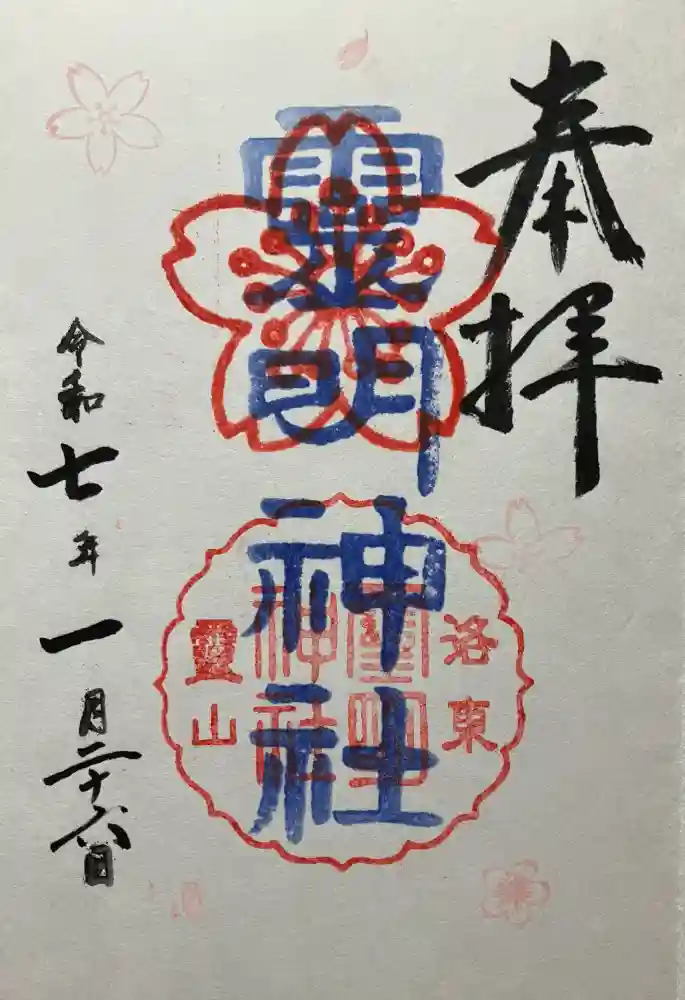 奉拝
霊明神社
洛東
靈山
靈明
神社
令和七年一月二十六日